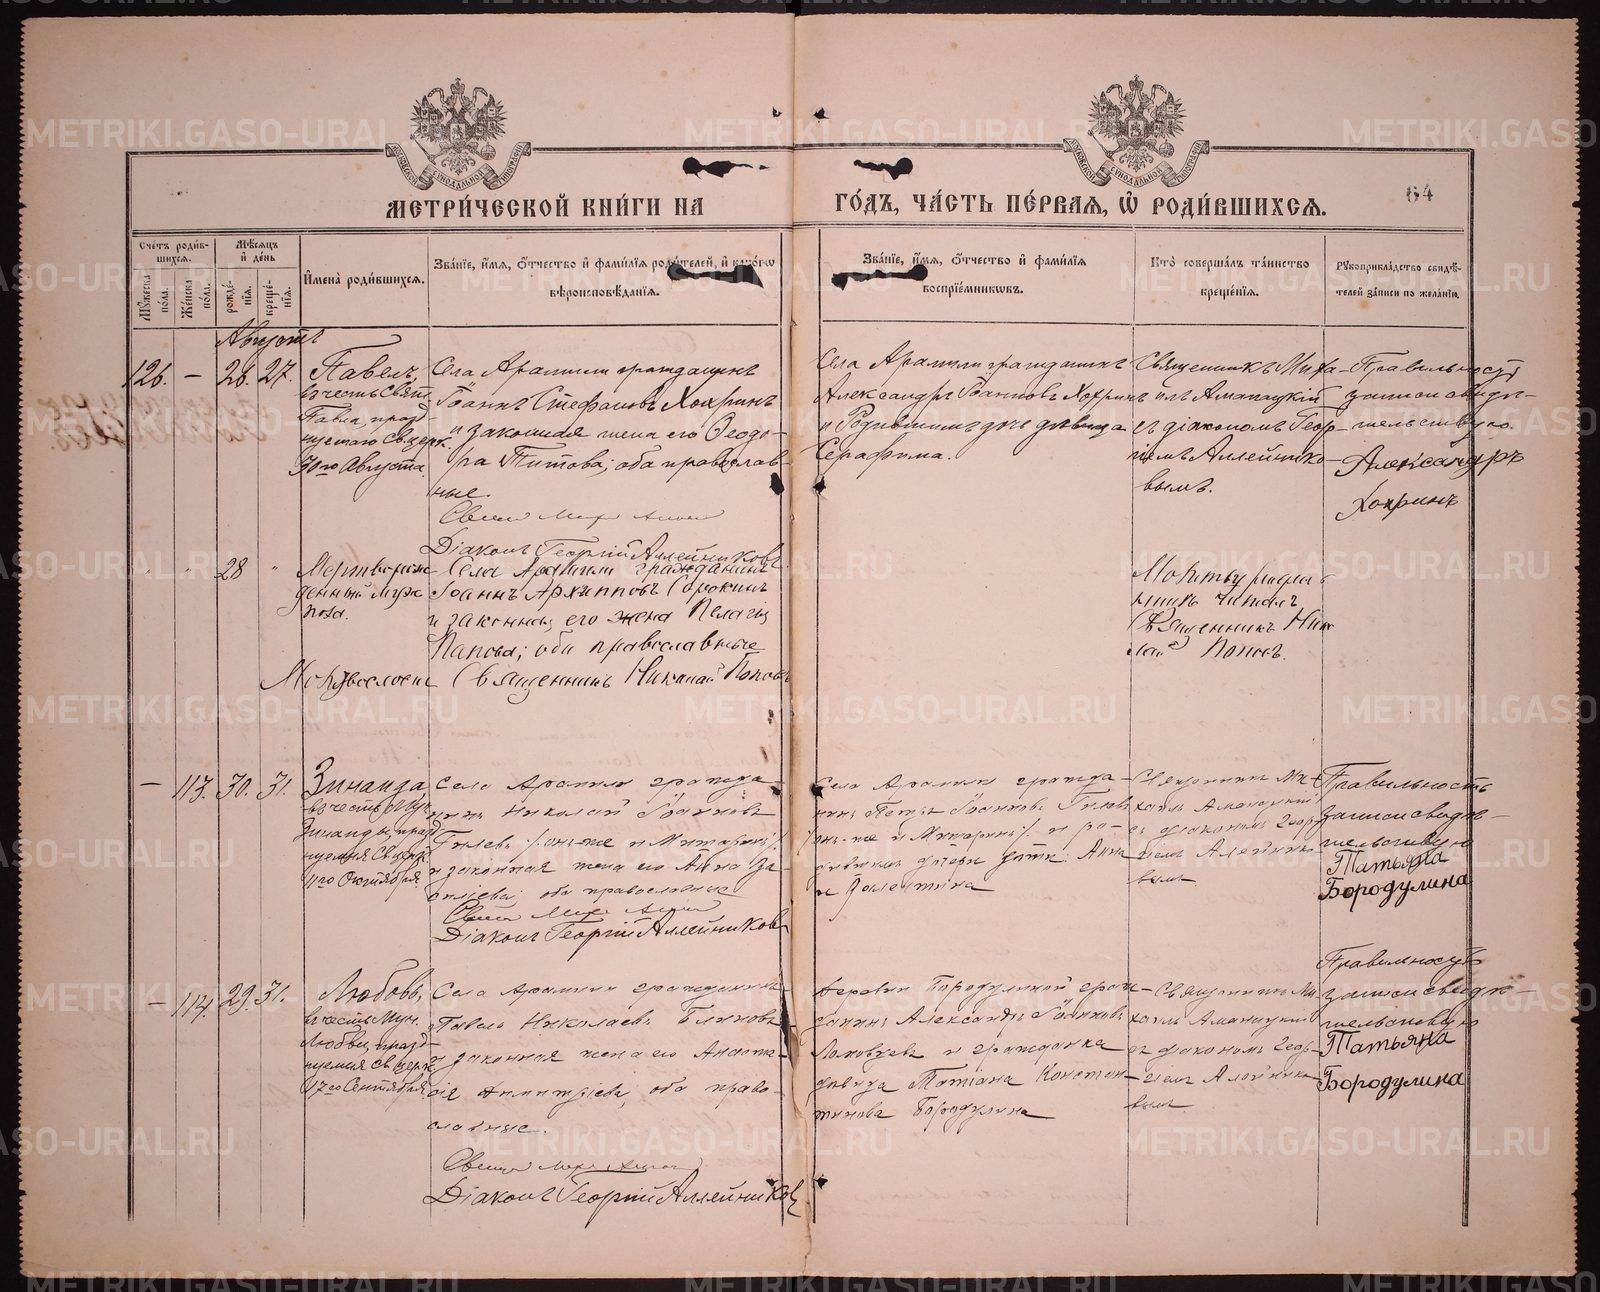 МЕТРИ́ЧЕСКОЙ КНИ́ГИ НА
ГО́ДЪ, ЧА́СТЬ ПЕ́РВАЯ, Ѽ РОДИ́ВШИХСЯ.
64
Сче́тъ роди́в-
шихся.
Мꙋ́жеска
по́ла.
Же́нска
по́ла.
Мѣ́сяцъ
и҆ де́нь
рожде́-
нїя.
креще́-
нїя.
И҆мена̀ роди́вшихся.
Зва́нїе, и҆́мя, ѻ҆́тчество и҆ фами́лїя роди́телей, и҆ како́гѡ
вѣроисповѣ́данїя.
Зва́нїе, и҆́мя, ѻ҆́тчество и҆ фами́лїя
воспрїе́мникѡвъ.
Кто̀ соверша́лъ та́инство
креще́нїя.
Рꙋкоприкла́дство свидѣ́-
телей за́писи по жела́нїю.
Августъ
126. — 26. 27.
Павелъ,
въ честь Свят.
Павла, празд
нуемаго Св. церк.
30го Августа.
Села Арамили гражданинъ
Іоаннъ Стефановъ Хохринъ
и законная жена его Ѳеодо-
ра Титова; оба православ-
ные.
Діаконъ Георгій Аллейниковъ
Села Арамили гражданинъ
Александръ Іоанновъ Хохринъ
и Родионова дочь дѣвица
Серафима.
Священникъ Миха-
илъ Аманацкій
съ діакономъ Геор-
гіемъ Аллейнико-
вымъ.
Правильность
записи свидѣ-
тельствую.
Александръ
Хохринъ
28
Мертворож
денный муж
пола.
Села Арамили гражданинъ
Іоаннъ Архипповъ Сорокинъ
и законная его жена Пелагія
Папова; оба православные
Священникъ Николай Поповъ
Молитву
читалъ
Священникъ Нико
лай Поповъ.
— 113. 30. 31.
Зинаида
въ честь Муч.
Зинаиды, празд
нуемыя Св. церк.
11го Октября.
Села Арамили гражда-
нинъ Николай Іоанновъ
Гилевъ /онъ-же и Митаринъ/
и законная жена его Анна Ва-
силіева; оба православные
Діаконъ Георгій Аллейниковъ
Села Арамили гражда-
нинъ Петръ Іоанновъ Гилевъ
/онъ-же и Митаринъ/ и
дочери дѣти: Анна
и Валентина
Священникъ Ми-
хаилъ Аманацкій
съ діакономъ Геор-
гіемъ Алейнико-
вымъ
Правильность
записи свидѣ-
тельствую
Татьяна
Бородулина
— 114. 29. 31.
Любовь,
въ честь Муч.
Любви, празд-
нуемыя Св. церк.
17го Сентября.
Села Арамили гражданинъ
Павелъ Николаевъ Блиновъ
и законная жена его Анаста-
сія Димитріева, оба право-
славные.
Діаконъ Георгій Аллейниковъ
Деревни Бородулиной граж-
данинъ Александръ Іоанновъ
и гражданка
дѣвица Татіана Констан-
тинова Бородулина
Священникъ Ми-
хаилъ Аманацкій
съ діакономъ Геор-
гіемъ Алейнико-
вымъ
Правильность
записи свидѣ-
тельствую
Татьяна
Бородулина
METRIKI.GASO-URAL.RU